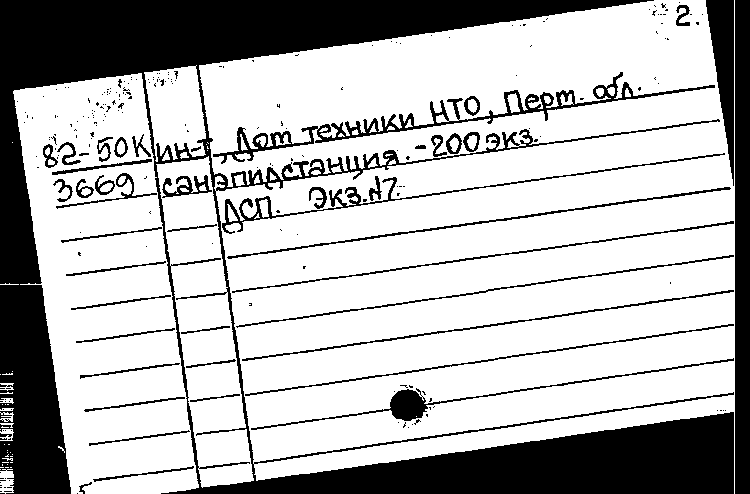 2.
82-50К ин-т, Дом техники НТО, Перм. обл.
3669 санэпидстанция. - 200 экз.
ДСП. Экз.№7.